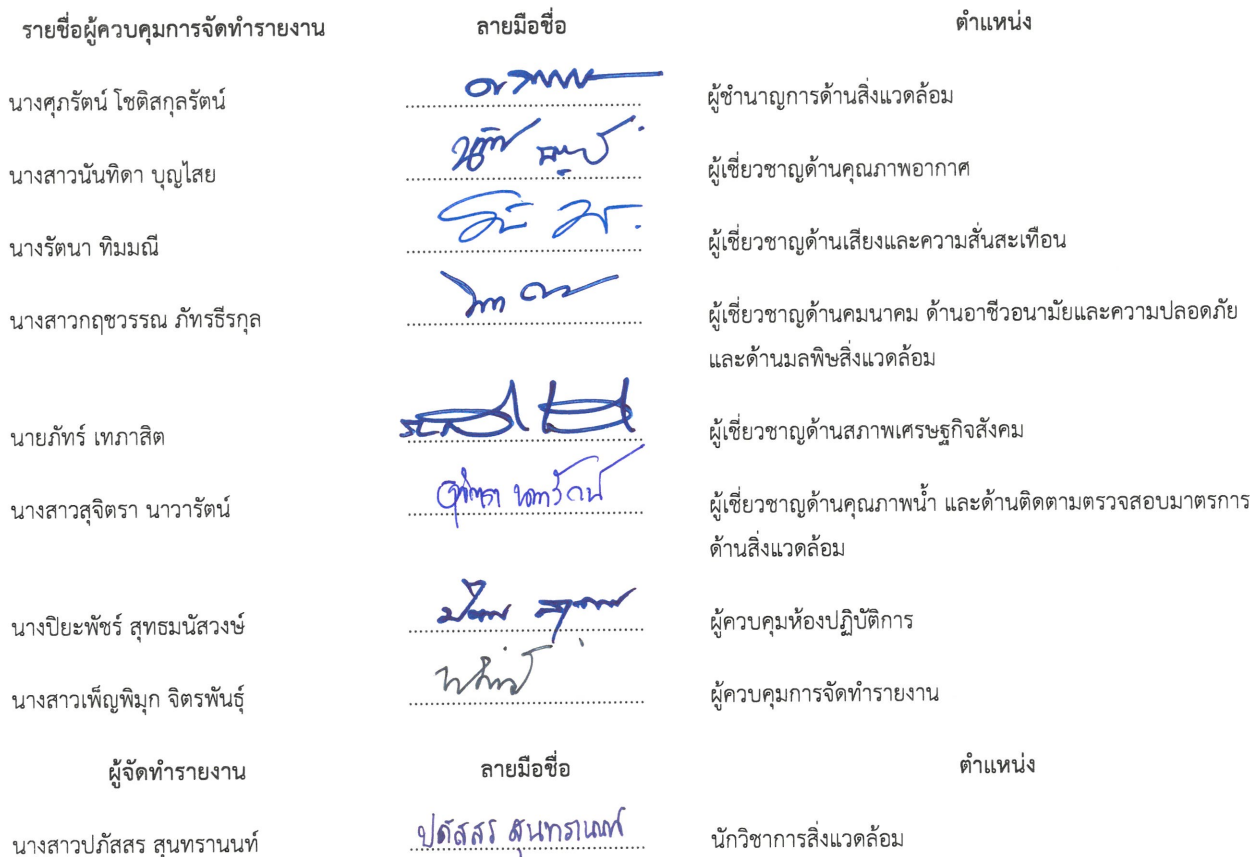 รายชื่อผู้ควบคุมการจัดทำรายงาน ลายมือชื่อ ตำแหน่ง
นางศุภรัตน์ โชติสกุลรัตน์ ผู้ชำนาญการด้านสิ่งแวดล้อม
นางสาวนันทิดา บุญไสย ผู้เชี่ยวชาญด้านคุณภาพอากาศ
นางรัตนา ทิมมณี ผู้เชี่ยวชาญด้านเสียงและความสั่นสะเทือน
นางสาวกฤชวรรณ ภัทรธีรกุล ผู้เชี่ยวชาญด้านคมนาคม ด้านอาชีวอนามัยและความปลอดภัย
และด้านมลพิษสิ่งแวดล้อม
นายภัทร์ เทภาสิต ผู้เชี่ยวชาญด้านสภาพเศรษฐกิจสังคม
นางสาวสุจิตรา นาวารัตน์ สุจิตรา นาวารัตน์ ผู้เชี่ยวชาญด้านคุณภาพน้ำ และด้านติดตามตรวจสอบมาตรการ
ด้านสิ่งแวดล้อม
นางปิยะพัชร์ สุทธมนัสวงษ์ ผู้ควบคุมห้องปฏิบัติการ
นางสาวเพ็ญพิมุก จิตรพันธุ์ ผู้ควบคุมการจัดทำรายงาน
ผู้จัดทำรายงาน ลายมือชื่อ ตำแหน่ง
นางสาวปภัสสร สุนทรานนท์ ปภัสสร สุนทรานนท์ นักวิชาการสิ่งแวดล้อม